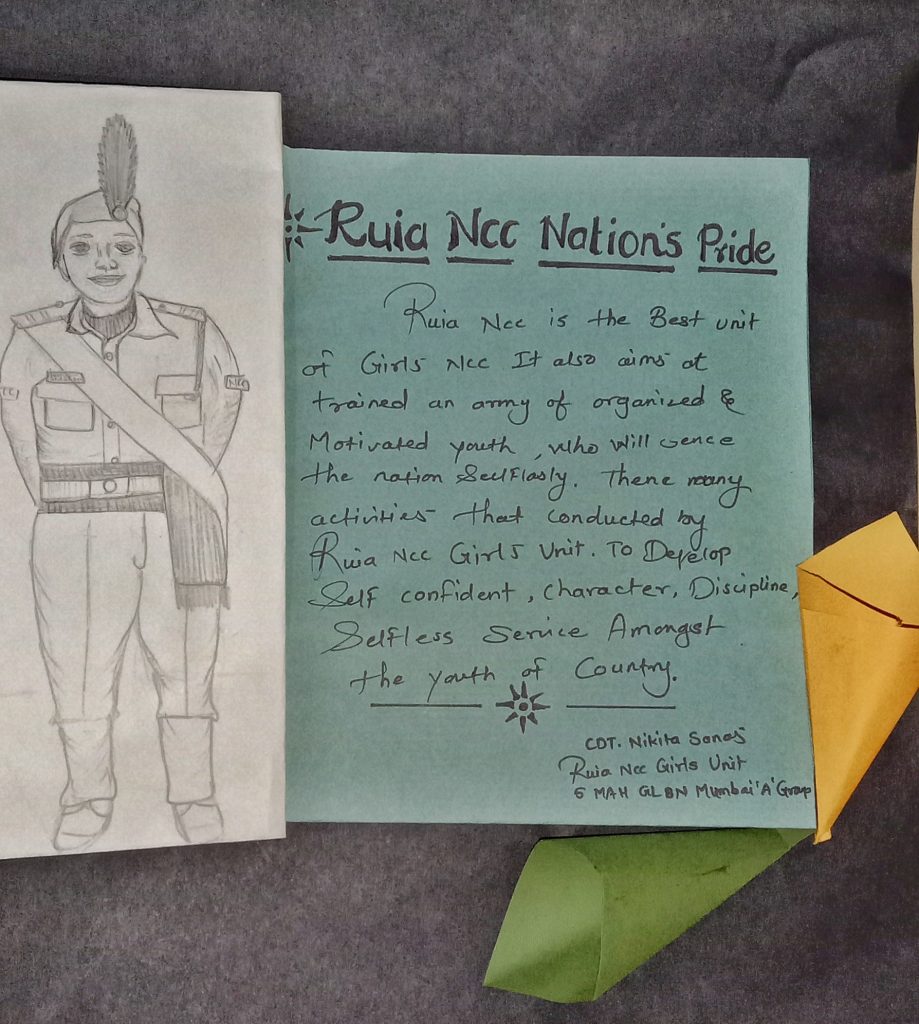 Ruia Ncc Nation's Pride
Ruia Ncc is the Best unit
of Girls Ncc It also aims at
trained an army of organized &
Motivated youth, who will
the nation Selflasly. There many
activities that conducted by
Ruia Ncc Girls Unit. To Develop
Self confident, character, Discipline,
Selfless Service Amongst
the youth of Country.
CDT. Nikita
Ruia Ncc Girls Unit
6 MAH GL BN Mumbai 'A' Group
NCC